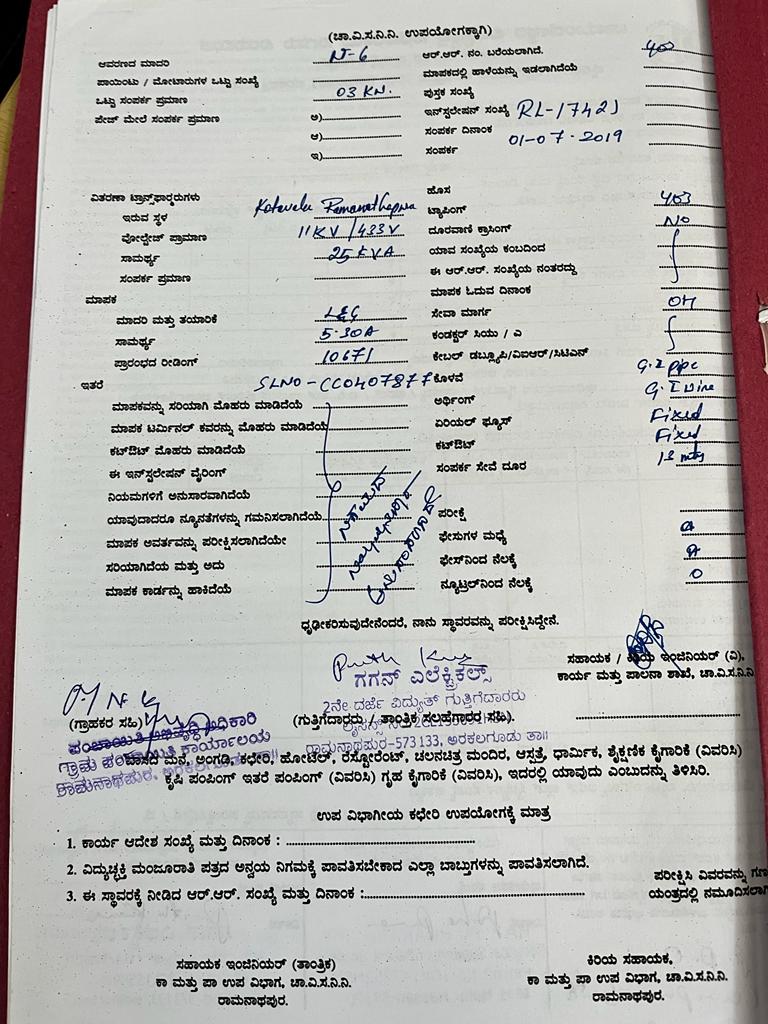 (ಚಾ.ವಿ.ಸ.ನಿ.ನಿ. ಉಪಯೋಗಕ್ಕಾಗಿ)
ಆವರಣದ ಮಾದರಿ N-6 ಆರ್.ಆರ್. ನಂ. ಬರೆಯಲಾಗಿದೆ. 403
ಪಾಯಿಂಟು / ಮೋಟಾರುಗಳ ಒಟ್ಟು ಸಂಖ್ಯೆ ಮಾಪಕದಲ್ಲಿ ಹಾಳೆಯನ್ನು ಇಡಲಾಗಿದೆಯೆ
ಒಟ್ಟು ಸಂಪರ್ಕ ಪ್ರಮಾಣ 03 KN. ಪುಸ್ತಕ ಸಂಖ್ಯೆ
ಪೇಜ್ ಮೇಲೆ ಸಂಪರ್ಕ ಪ್ರಮಾಣ ಅ) ಇನ್‌ಸ್ಟಲೇಷನ್ ಸಂಖ್ಯೆ RL-17421
ಆ) ಸಂಪರ್ಕ ದಿನಾಂಕ 01-07-2019
ಇ) ಸಂಪರ್ಕ
ಹೊಸ
ವಿತರಣಾ ಟ್ರಾನ್ಸ್‌ಫಾರ್ಮರುಗಳು ಟ್ಯಾಪಿಂಗ್ 403
ಇರುವ ಸ್ಥಳ ದೂರವಾಣಿ ಕ್ರಾಸಿಂಗ್ NO
ವೋಲ್ಟೇಜ್ ಪ್ರಾಮಾಣ 11KV / 433V ಯಾವ ಸಂಖ್ಯೆಯ ಕಂಬದಿಂದ
ಸಾಮರ್ಥ್ಯ 25 KVA ಈ ಆರ್.ಆರ್. ಸಂಖ್ಯೆಯ ನಂತರದ್ದು
ಸಂಪರ್ಕ ಪ್ರಮಾಣ ಮಾಪಕ ಓದುವ ದಿನಾಂಕ
ಮಾಪಕ ಸೇವಾ ಮಾರ್ಗ OH
ಮಾದರಿ ಮತ್ತು ತಯಾರಿಕೆ L&G ಕಂಡಕ್ಟರ್ ಸಿಯು / ಎ
ಸಾಮರ್ಥ್ಯ 5-30A ಕೇಬಲ್ ಡಬ್ಲ್ಯೂಪಿ/ವಿಐಆರ್/ಸಿಟಿಎಸ್
ಪ್ರಾರಂಭದ ರೀಡಿಂಗ್ 10671 ಕೊಳವೆ G.I pipe
ಇತರೆ SLNO-CC0407877 ಅರ್ಥಿಂಗ್ G.I Wire
ಮಾಪಕವನ್ನು ಸರಿಯಾಗಿ ಮೊಹರು ಮಾಡಿದೆಯೆ ಏರಿಯಲ್ ಫ್ಯೂಸ್ Fixed
ಮಾಪಕ ಟರ್ಮಿನಲ್ ಕವರನ್ನು ಮೊಹರು ಮಾಡಿದೆಯೆ ಕಟ್‌ಔಟ್ Fixed
ಕಟ್‌ಔಟ್ ಮೊಹರು ಮಾಡಿದೆಯೆ ಸಂಪರ್ಕ ಸೇವೆ ದೂರ
ಈ ಇನ್‌ಸ್ಟಲೇಷನ್ ವೈರಿಂಗ್
ನಿಯಮಗಳಿಗೆ ಅನುಸಾರವಾಗಿದೆಯೆ
ಯಾವುದಾದರೂ ನ್ಯೂನತೆಗಳನ್ನು ಗಮನಿಸಲಾಗಿದೆಯೆ ಪರೀಕ್ಷೆ
ಮಾಪಕ ಅವರ್ತವನ್ನು ಪರೀಕ್ಷಿಸಲಾಗಿದೆಯೇ ಫೇಸುಗಳ ಮಧ್ಯೆ
ಸರಿಯಾಗಿದೆಯ ಮತ್ತು ಅದು ಫೇಸ್‌ನಿಂದ ನೆಲಕ್ಕೆ
ಮಾಪಕ ಕಾರ್ಡನ್ನು ಹಾಕಿದೆಯೆ ನ್ಯೂಟ್ರಲ್‌ನಿಂದ ನೆಲಕ್ಕೆ
ಧೃಢೀಕರಿಸುವುದೇನೆಂದರೆ, ನಾನು ಸ್ಥಾವರವನ್ನು ಪರೀಕ್ಷಿಸಿದ್ದೇನೆ.
ಸಹಾಯಕ / ಕಿರಿಯ ಇಂಜಿನಿಯರ್ (ವಿ),
ಕಾರ್ಯ ಮತ್ತು ಪಾಲನಾ ಶಾಖೆ, ಚಾ.ವಿ.ಸ.ನಿ.ನಿ
ಗಗನ್ ಎಲೆಕ್ಟ್ರಿಕಲ್ಸ್
2ನೇ ದರ್ಜೆ ವಿದ್ಯುತ್ ಗುತ್ತಿಗೆದಾರರು
(ಗ್ರಾಹಕರ ಸಹಿ) (ಗುತ್ತಿಗೆದಾರರು / ತಾಂತ್ರಿಕ ಸಲಹೆಗಾರರ ಸಹಿ).
ರಾಮನಾಥಪುರ-573 133, ಅರಕಲಗೂಡು ತಾ॥
ಪಂಚಾಯಿತಿ ಅಭಿವೃದ್ಧಿ ಅಧಿಕಾರಿ
ಗ್ರಾಮ ಪಂಚಾಯಿತಿ ಕಾರ್ಯಾಲಯ
ರಾಮನಾಥಪುರ, ಅರಕಲಗೂಡು ತಾ॥
ವಾಸದ ಮನೆ, ಅಂಗಡಿ, ಕಛೇರಿ, ಹೋಟೆಲ್, ರೆಸ್ಟೋರೆಂಟ್, ಚಲನಚಿತ್ರ ಮಂದಿರ, ಆಸ್ಪತ್ರೆ, ಧಾರ್ಮಿಕ, ಶೈಕ್ಷಣಿಕ ಕೈಗಾರಿಕೆ (ವಿವರಿಸಿ)
ಕೃಷಿ ಪಂಪಿಂಗ್ ಇತರೆ ಪಂಪಿಂಗ್ (ವಿವರಿಸಿ) ಗೃಹ ಕೈಗಾರಿಕೆ (ವಿವರಿಸಿ), ಇದರಲ್ಲಿ ಯಾವುದು ಎಂಬುದನ್ನು ತಿಳಿಸಿರಿ.
ಉಪ ವಿಭಾಗೀಯ ಕಛೇರಿ ಉಪಯೋಗಕ್ಕೆ ಮಾತ್ರ
1. ಕಾರ್ಯ ಆದೇಶ ಸಂಖ್ಯೆ ಮತ್ತು ದಿನಾಂಕ :
2. ವಿದ್ಯುಚ್ಛಕ್ತಿ ಮಂಜೂರಾತಿ ಪತ್ರದ ಅನ್ವಯ ನಿಗಮಕ್ಕೆ ಪಾವತಿಸಬೇಕಾದ ಎಲ್ಲಾ ಬಾಬ್ತುಗಳನ್ನು ಪಾವತಿಸಲಾಗಿದೆ.
3. ಈ ಸ್ಥಾವರಕ್ಕೆ ನೀಡಿದ ಆರ್.ಆರ್. ಸಂಖ್ಯೆ ಮತ್ತು ದಿನಾಂಕ :
ಪರೀಕ್ಷಿಸಿ ವಿವರವನ್ನು ಗಣ
ಯಂತ್ರದಲ್ಲಿ ನಮೂದಿಸಲಾಗಿ
ಸಹಾಯಕ ಇಂಜಿನಿಯರ್ (ತಾಂತ್ರಿಕ) ಕಿರಿಯ ಸಹಾಯಕ,
ಕಾ ಮತ್ತು ಪಾ ಉಪ ವಿಭಾಗ, ಚಾ.ವಿ.ಸ.ನಿ.ನಿ. ಕಾ ಮತ್ತು ಪಾ ಉಪ ವಿಭಾಗ, ಚಾ.ವಿ.ಸ.ನಿ.ನಿ.
ರಾಮನಾಥಪುರ. ರಾಮನಾಥಪುರ.